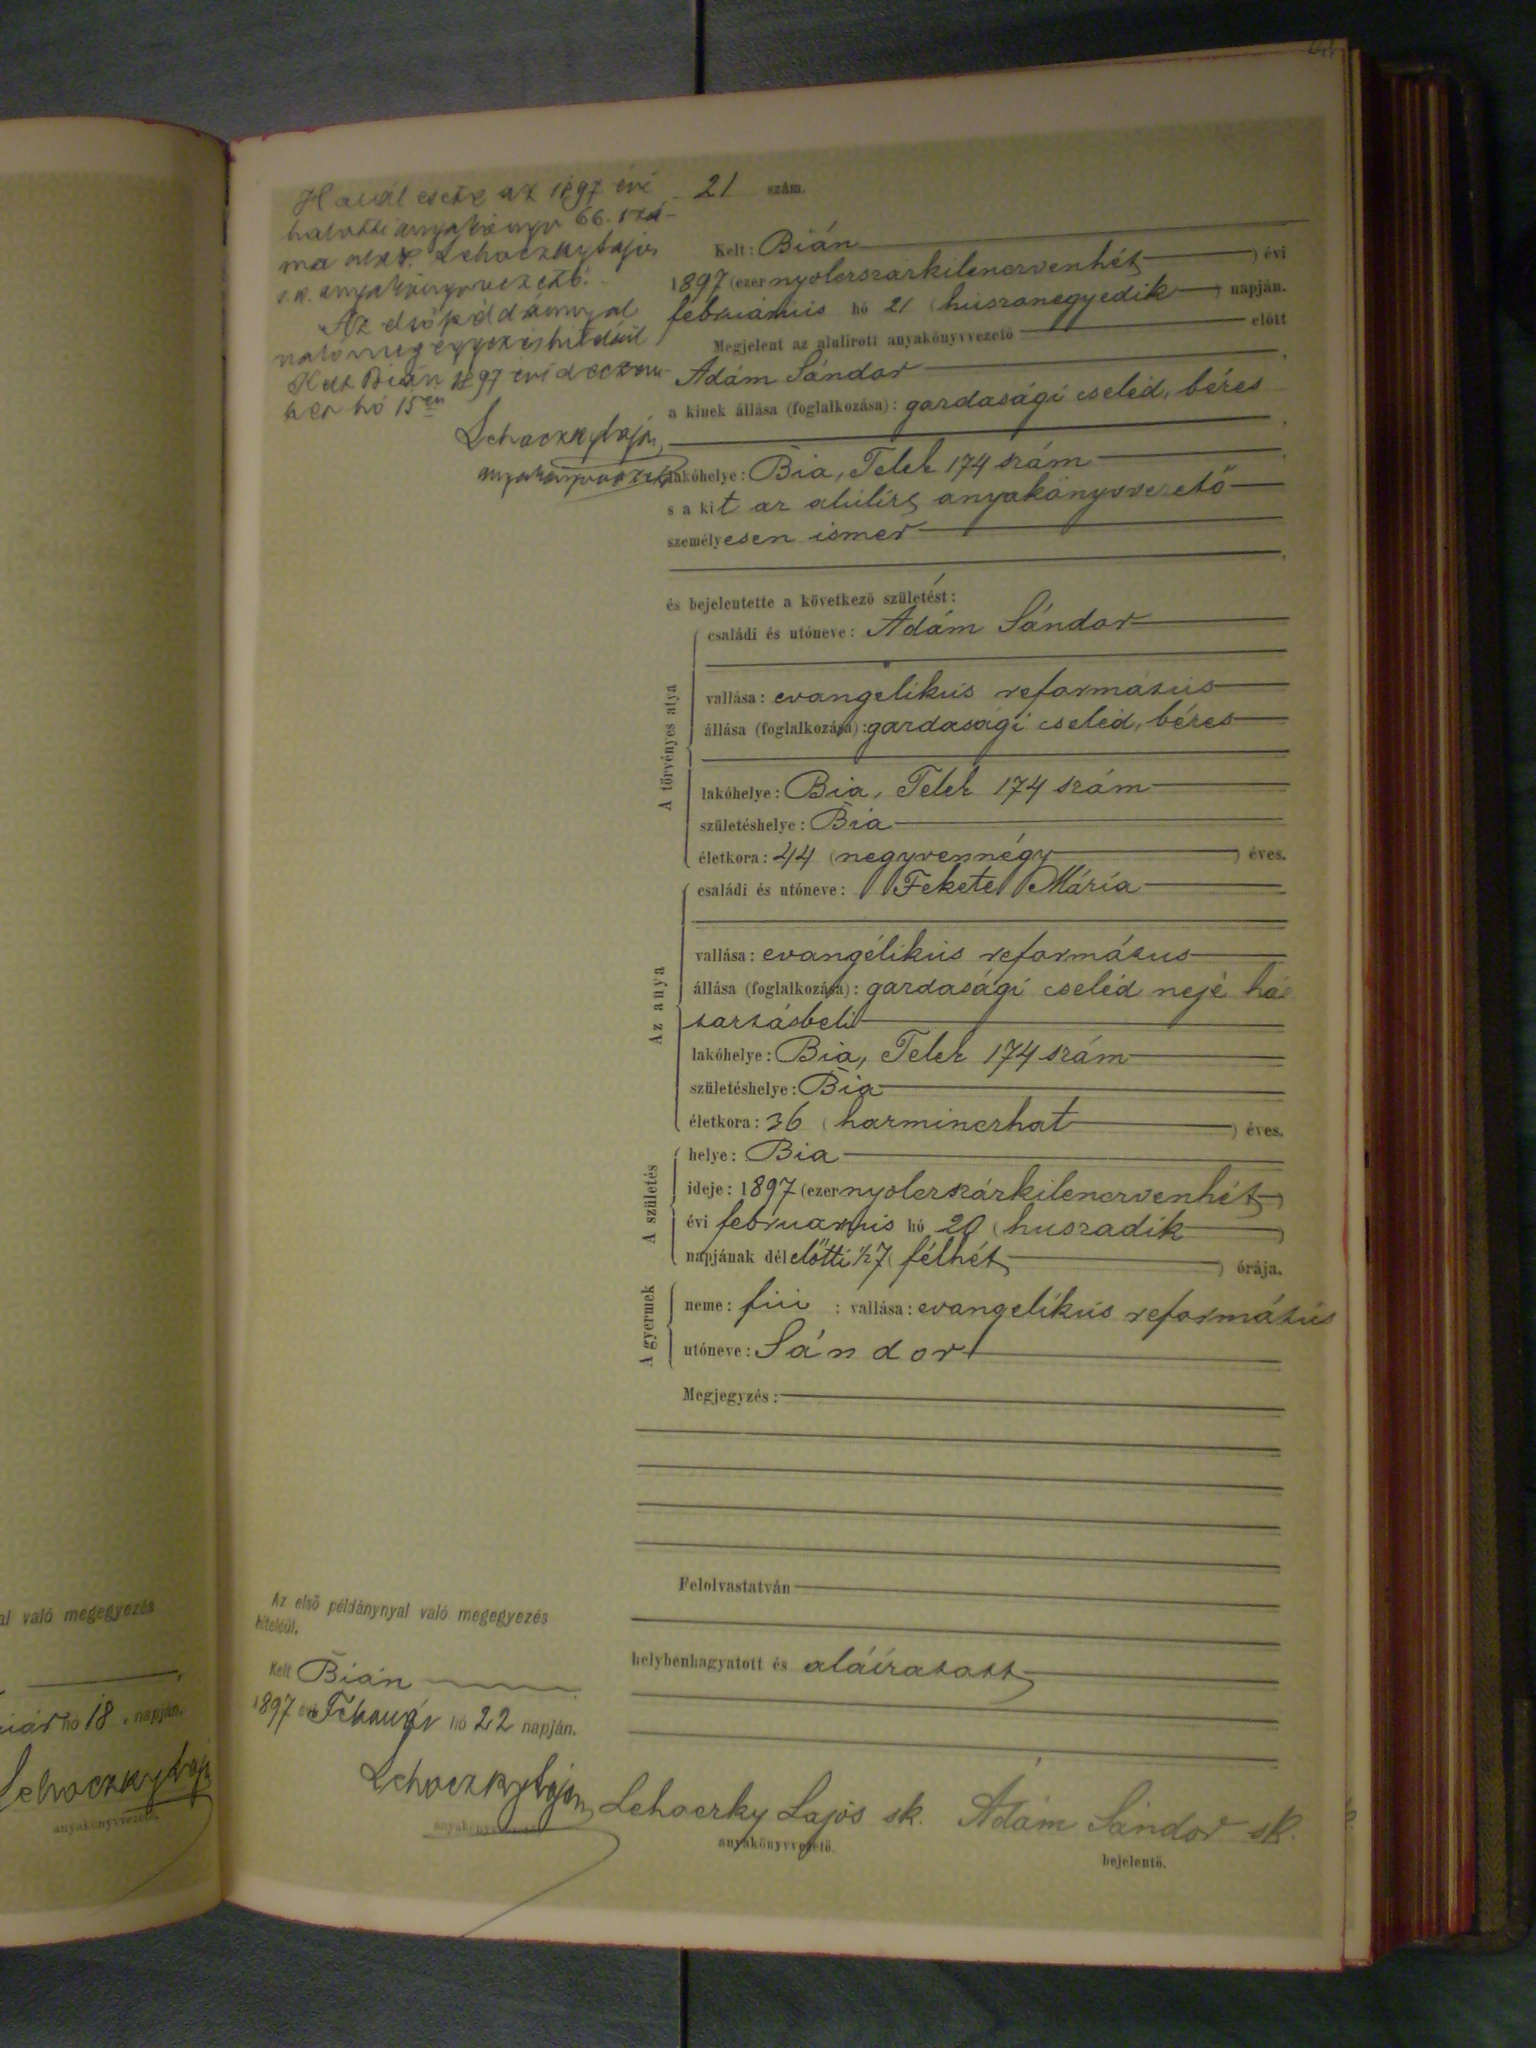 al való megegyezés
hó 18. napján.
Lehoczky Lajos
anyakönyvvezető.
Halál esete az 1897 évi
halotti anyakönyv 66. szá-
ma alatt. Lehoczky Lajos
s.k. anyakönyvvezető.
Az első példánnyal
való megegyezés hiteléül
Kelt Bián 1897 évi decem-
ber hó 15én
Lehoczky Lajos
anyakönyvvezető
21 szám.
Kelt: Bián
1897 (ezer nyolczszázkilenczvenhét) évi
februárius hó 21 (huszonegyedik) napján.
Megjelent az alulirott anyakönyvvezető előtt
Ádám Sándor
a kinek állása (foglalkozása): gazdasági cseléd, béres
lakóhelye: Bia, Telek 174 szám
s a kit az alulírt anyakönyvvezető
személyesen ismer
és bejelentette a következő születést:
A törvényes atya
családi és utóneve: Ádám Sándor
vallása: evangelikus református
állása (foglalkozása): gazdasági cseléd, béres
lakóhelye: Bia, Telek 174 szám
születéshelye: Bia
életkora: 44 (negyvennégy) éves.
Az anya
családi és utóneve: Fekete Mária
vallása: evangélikus református
állása (foglalkozása): gazdasági cseléd neje há
tartásbeli
lakóhelye: Bia, Telek 174 szám
születéshelye: Bia
életkora: 36 (harminczhat) éves.
A születés
helye: Bia
ideje: 1897 (ezer nyolczszázkilenczvenhét)
évi februárius hó 20 (huszadik)
napjának délelőtti ½7 (félhét) órája.
A gyermek
neme: fiú ; vallása: evangelikus református
utóneve: Sándor
Megjegyzés:
Felolvastatván
helybenhagyatott és aláíratott
Az első példánynyal való megegyezés
hiteléül.
Kelt Bián
1897 évi Február hó 22 napján.
Lehoczky Lajos
anyakönyvvezető
Lehoczky Lajos sk.
anyakönyvvezető.
Ádám Sándor sk.
bejelentő.